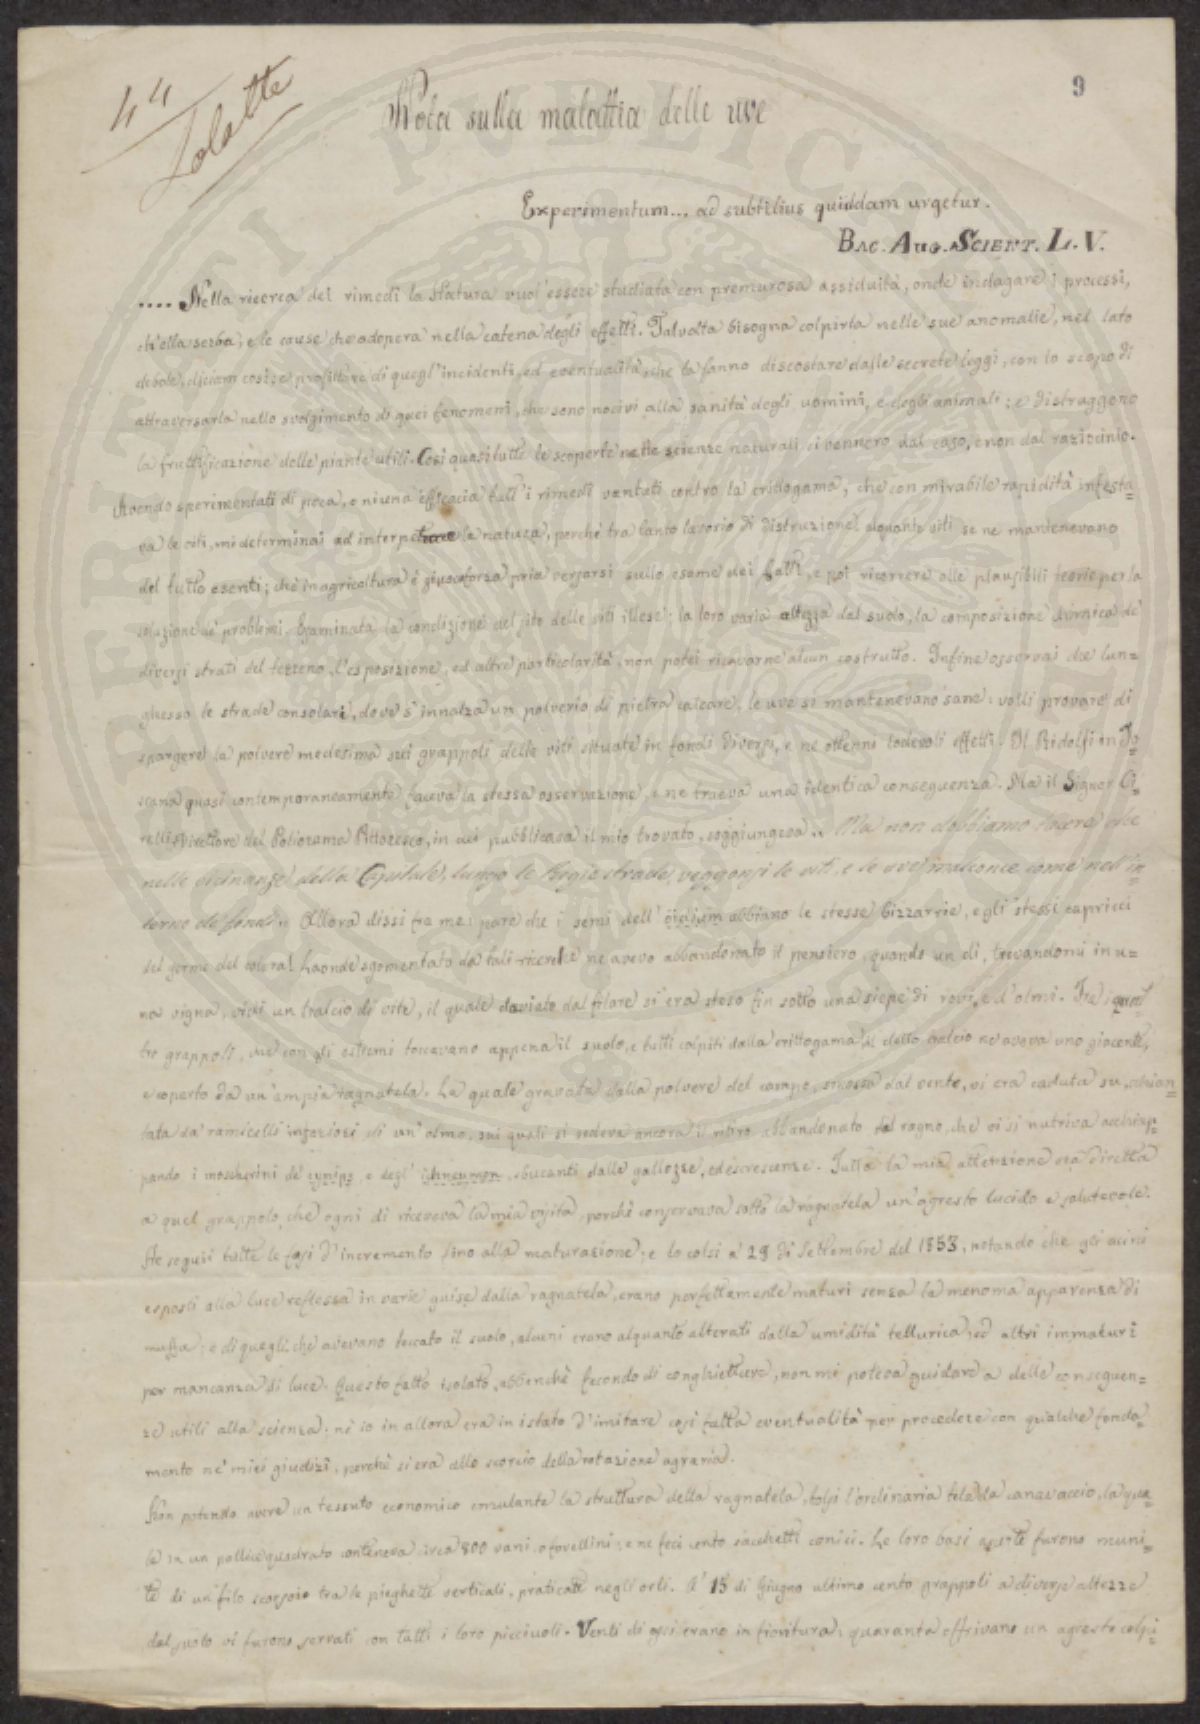 44
9
Nota sulla malattia delle uve
Experimentum... ad subtilius quiddam urgetur.
Bac. Aug. Scient. L. V.
.... Nella ricerca dei rimedî la Natura vuol'essere studiata con premurosa assiduità, onde indagare i processi,
ch'ella serba, e le cause che adopera nella catena degli effetti. Talvolta bisogna colpirla nelle sue anomalie, nel lato
debole, diciam così; e profittare di quegl'incidenti, ed eventualità, che la fanno discostare dalle secrete leggi, con lo scopo di
attraversarla nello svolgimento di quei fenomeni, che sono nocivi alla sanità degli uomini, e degli animali; e distraggono
la fruttificazione delle piante utili. Così quasi tutte le scoperte nelle scienze naturali ci vennero dal caso, e non dal raziocinio.
Avendo sperimentati di poca, o niuna efficacia tutt'i rimedî vantati contro la crittogama, che con mirabile rapidità infesta=
va le viti, mi determinai ad la natura, perchè tra tanto lavorio di distruzione alquante viti se ne mantenevano
del tutto esenti; chè in agricoltura è giuocoforza pria versarsi sullo esame dei fatti, e poi ricorrere alle plausibili teorie per la
soluzione de' problemi. Esaminata la condizione del sito delle viti illese; la loro varia altezza dal suolo, la composizione chimica de'
diversi strati del terreno, l'esposizione, ed altre particolarità, non potei ricavarne alcun costrutto. Infine osservai che lun=
ghesso le strade consolari, dove s'innalza un polverio di pietra calcare, le uve si mantenevano sane: volli provare di
spargere la polvere medesima sui grappoli delle viti situate in fondi diversi, e ne ottenni lodevoli effetti. Il Ridolfi in To=
scana quasi contemporaneamente faceva la stessa osservazione, e ne traeva una identica conseguenza. Ma il Signor Ci=
relli, Direttore del Poliorama Pittoresco, in cui pubblicava il mio trovato, soggiungeva „ Ma non dobbiamo tacere che
nelle vicinanze della Capitale, lungo le Regie strade, veggonsi le viti, e le uve malconce come nell'in=
terno de' fondi „ Allora dissi fra me: pare che i semi dell'oidium abbiano le stesse bizzarrie, e gli stessi capricci
del germe del colera! Laonde sgomentato da tali ricerche ne avevo abbandonato il pensiero, quando un dì, trovandomi in u=
na vigna, vidi un tralcio di vite, il quale deviato dal filare si era steso fin sotto una siepe di rovi, e d'olmi. Tra quat=
tro grappoli, che con gli estremi toccavano appena il suolo, e tutti colpiti dalla crittogama, il detto tralcio ne aveva uno giacente,
e coperto da un'ampia ragnatela. La quale gravata dalla polvere del campo, smossa dal vento, vi era caduta su, schian=
tata da' ramicelli inferiori di un'olmo, sui quali si vedeva ancora il ritiro abbandonato del ragno, che vi si nutriva acchiap=
pando i moscherini de' cynips, e degl'ichneumon, sbucanti dalle gallozze, ed escrescenze. Tutta la mia attenzione era diretta
a quel grappolo, che ogni dì riceveva la mia visita, perchè conservava sotto la ragnatela un'agresto lucido e salutevole.
Ne seguii tutte le fasi d'incremento sino alla maturazione; e lo colsi a' 29 di Settembre del 1853, notando che gli acini
esposti alla luce reflessa in varie guise dalla ragnatela, erano perfettamente maturi senza la menoma apparenza di
muffa; e di quegli, che avevano toccato il suolo, alcuni erano alquanto alterati dalla umidità tellurica, ed altri immaturi
per mancanza di luce. Questo fatto isolato, abbenchè fecondo di conghietture, non mi poteva guidare a delle conseguen=
ze utili alla scienza; nè io in allora era in istato d'imitare così fatta eventualità per procedere con qualche fonda=
mento ne' miei giudizî, perchè si era allo scorcio della rotazione agraria.
Non potendo avere un tessuto economico emulante la struttura della ragnatela, tolsi l'ordinaria tela da canavaccio, la qua=
le in un pollice quadrato conteneva circa 800 vani, o forellini; e ne feci cento sacchetti conici. Le loro basi aperte furono muni=
te di un filo scorsoio tra le pieghette verticali, praticate negli orli. A' 15 di Giugno ultimo cento grappoli a diverse altezze
dal suolo vi furono serrati con tutti i loro picciuoli. Venti di essi erano in fioritura; quaranta offrivano un agresto colpi=